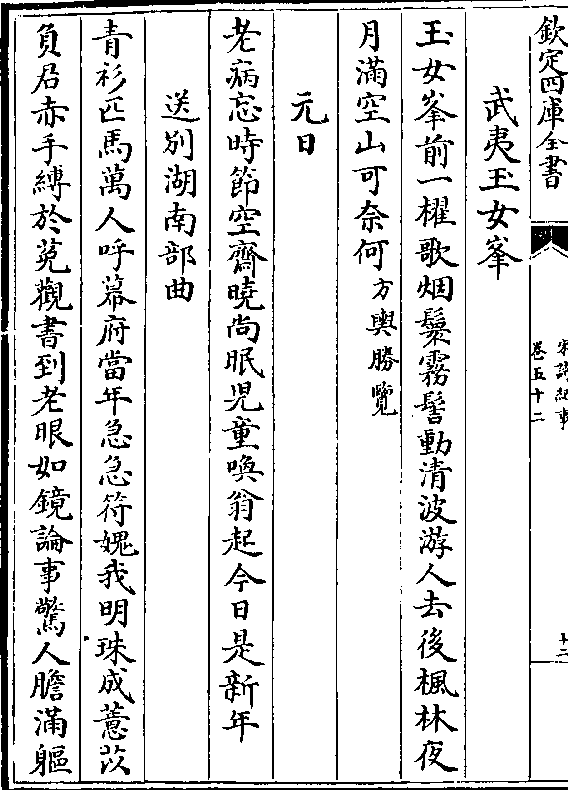 欽定四庫全書
宋詩紀事
卷五十二
十二
武夷玉女峯
玉女峯前一櫂歌烟鬟霧髻動清波游人去後楓林夜
月滿空山可奈何方輿勝覽
元日
老病忘時節空齋曉尚眠児童喚翁起今日是新年
送別湖南部曲
青衫匹馬萬人呼幕府當年急急符媿我明珠成薏苡
負君赤手縛於菟觀書到老眼如鏡論事驚人膽滿軀